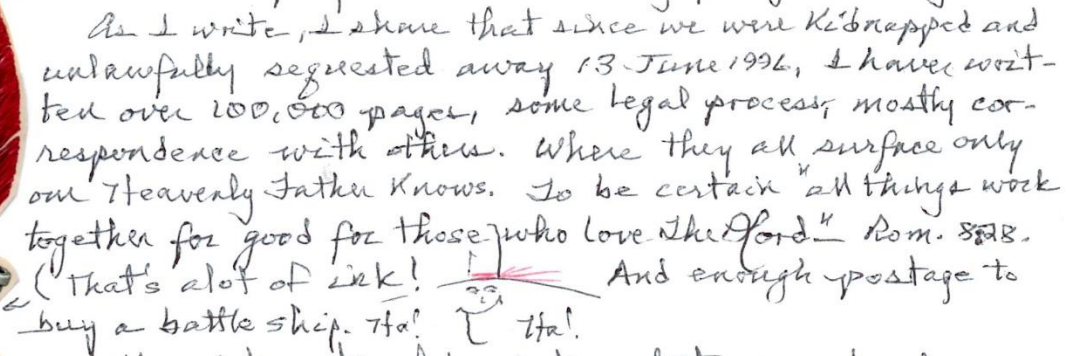 As I write, I share that since we were Kidnapped and
unlawfully seqrested away 13 June 1996, I have writ-
ten over 100,000 pages, some legal process, mostly cor-
respondence with others. Where they all surface only
our Heavenly Father Knows. To be certain "all things work
together for good for those who love The Lord" Rom. 8:28.
(That's alot of ink! And enough postage to
buy a battle ship. Ha! Ha!